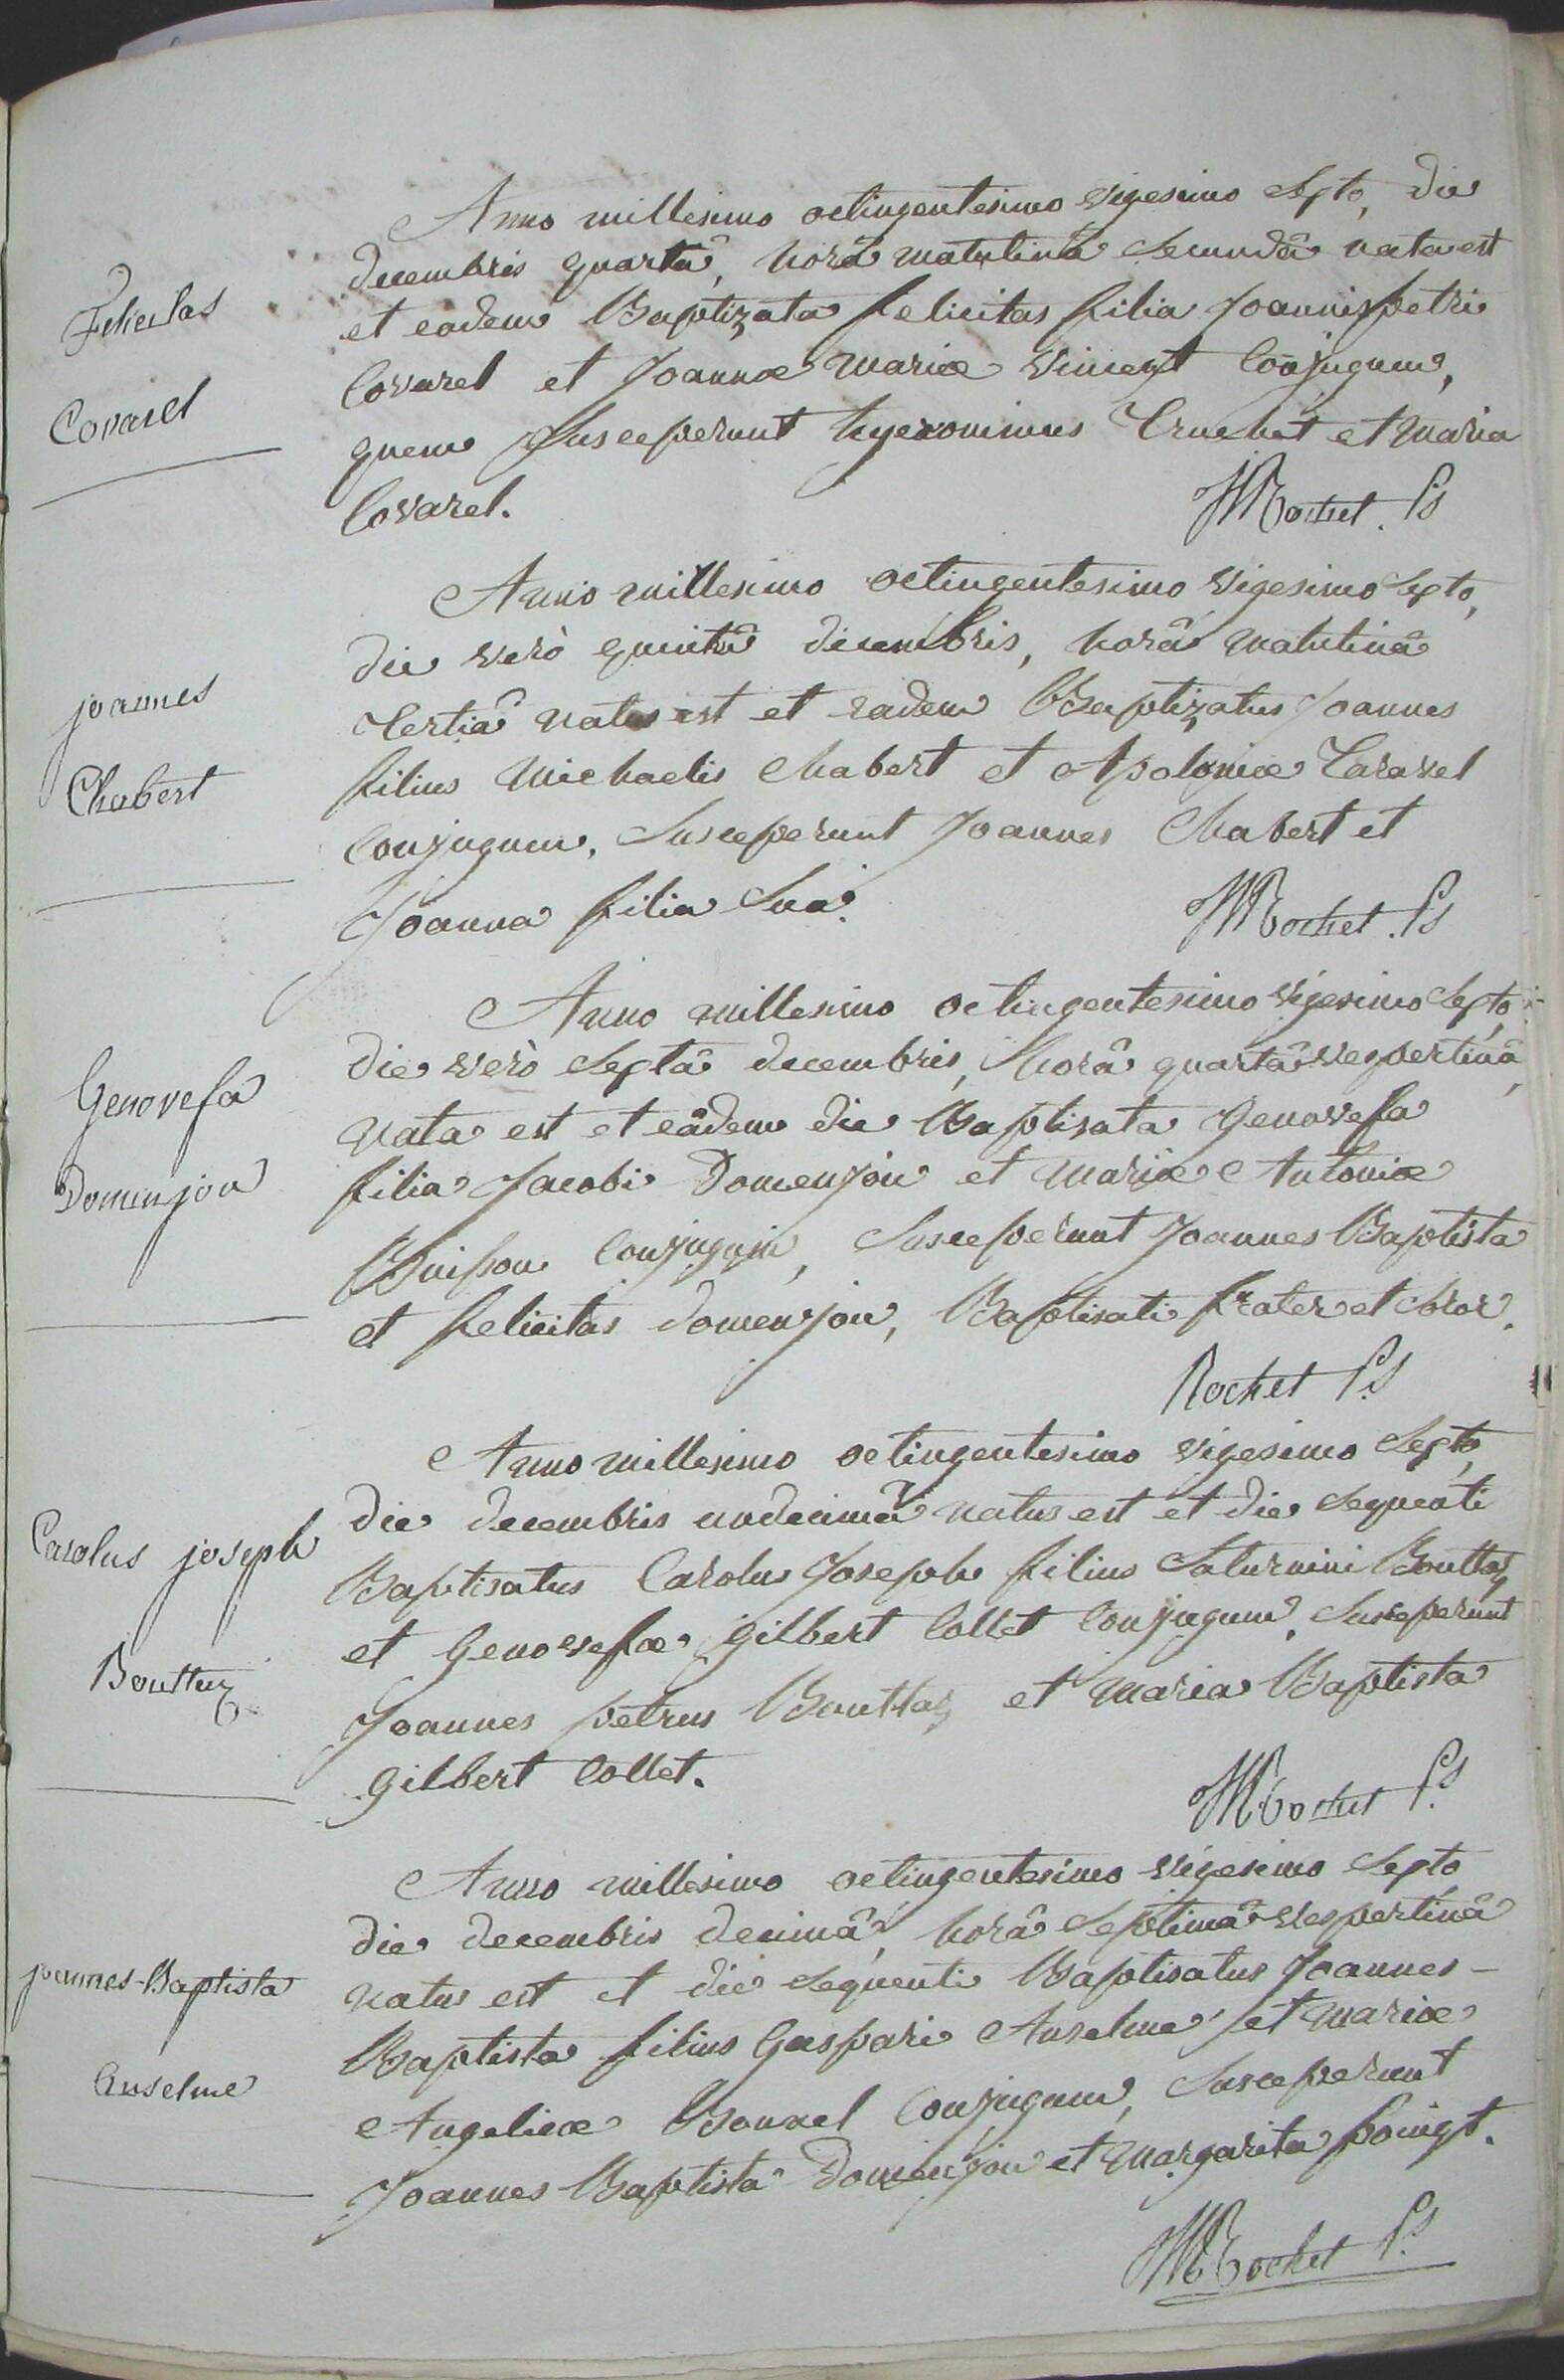 Anno millesimo octingentesimo vigesimo septo, die
decembris quartâ, horâ matutinâ secundâ nata est
et eadem Baptizata felicitas filia Joannis petri
Covarel et Joannæ mariæ vincent Conjugum,
quem susceperunt hyeronimus Truchet et maria
Covarel.
Rochet. Ps
Felicitas
Covarel
Anno millesimo octingentesimo vigesimo septo,
die verò quintâ decembris, horâ matutinâ
tertiâ natus est et eadem Baptizatus Joannes
filius Michaelis Chabert et Apoloniæ Taravel
Conjugum, susceperunt Joannes Chabert et
Joanna filia sua.
Rochet. Ps
joannes
Chabert
Anno millesimo octingentesimo vigesimo septo
die verò septâ decembris, horâ quartâ vespertinâ,
nata est et eâdem die Baptisata Genovefa
filia Jacobi Domenjon et mariæ Antoniæ
Buisson Conjugum, susceperunt Joannes Baptista
et felicitas domenjon, Baptisati frater et soror.
Rochet Ps
Genovefa
Domenjon
Anno millesimo octingentesimo vigesimo septo,
die decembris undecimâ natus est et die sequenti
Baptisatus Carolus Joseph filius Saturnini Bouttaz
et Genovefæ gilbert Collet Conjugum, susceperunt
Joannes petrus Bouttaz et maria Baptista
gilbert Collet.
Rochet Ps
Carolus joseph
Bouttaz
Anno millesimo octingentesimo vigesimo septo
die decembris decimâ, horâ septimâ vespertinâ
natus est et die sequenti Baptisatus Joannes-
Baptista filius Gaspari Anselme et mariæ
Angelicæ Bonnel Conjugum, susceperunt
Joannes Baptista Domenjon et margarita
Rochet Ps
joannes-Baptista
Anselme